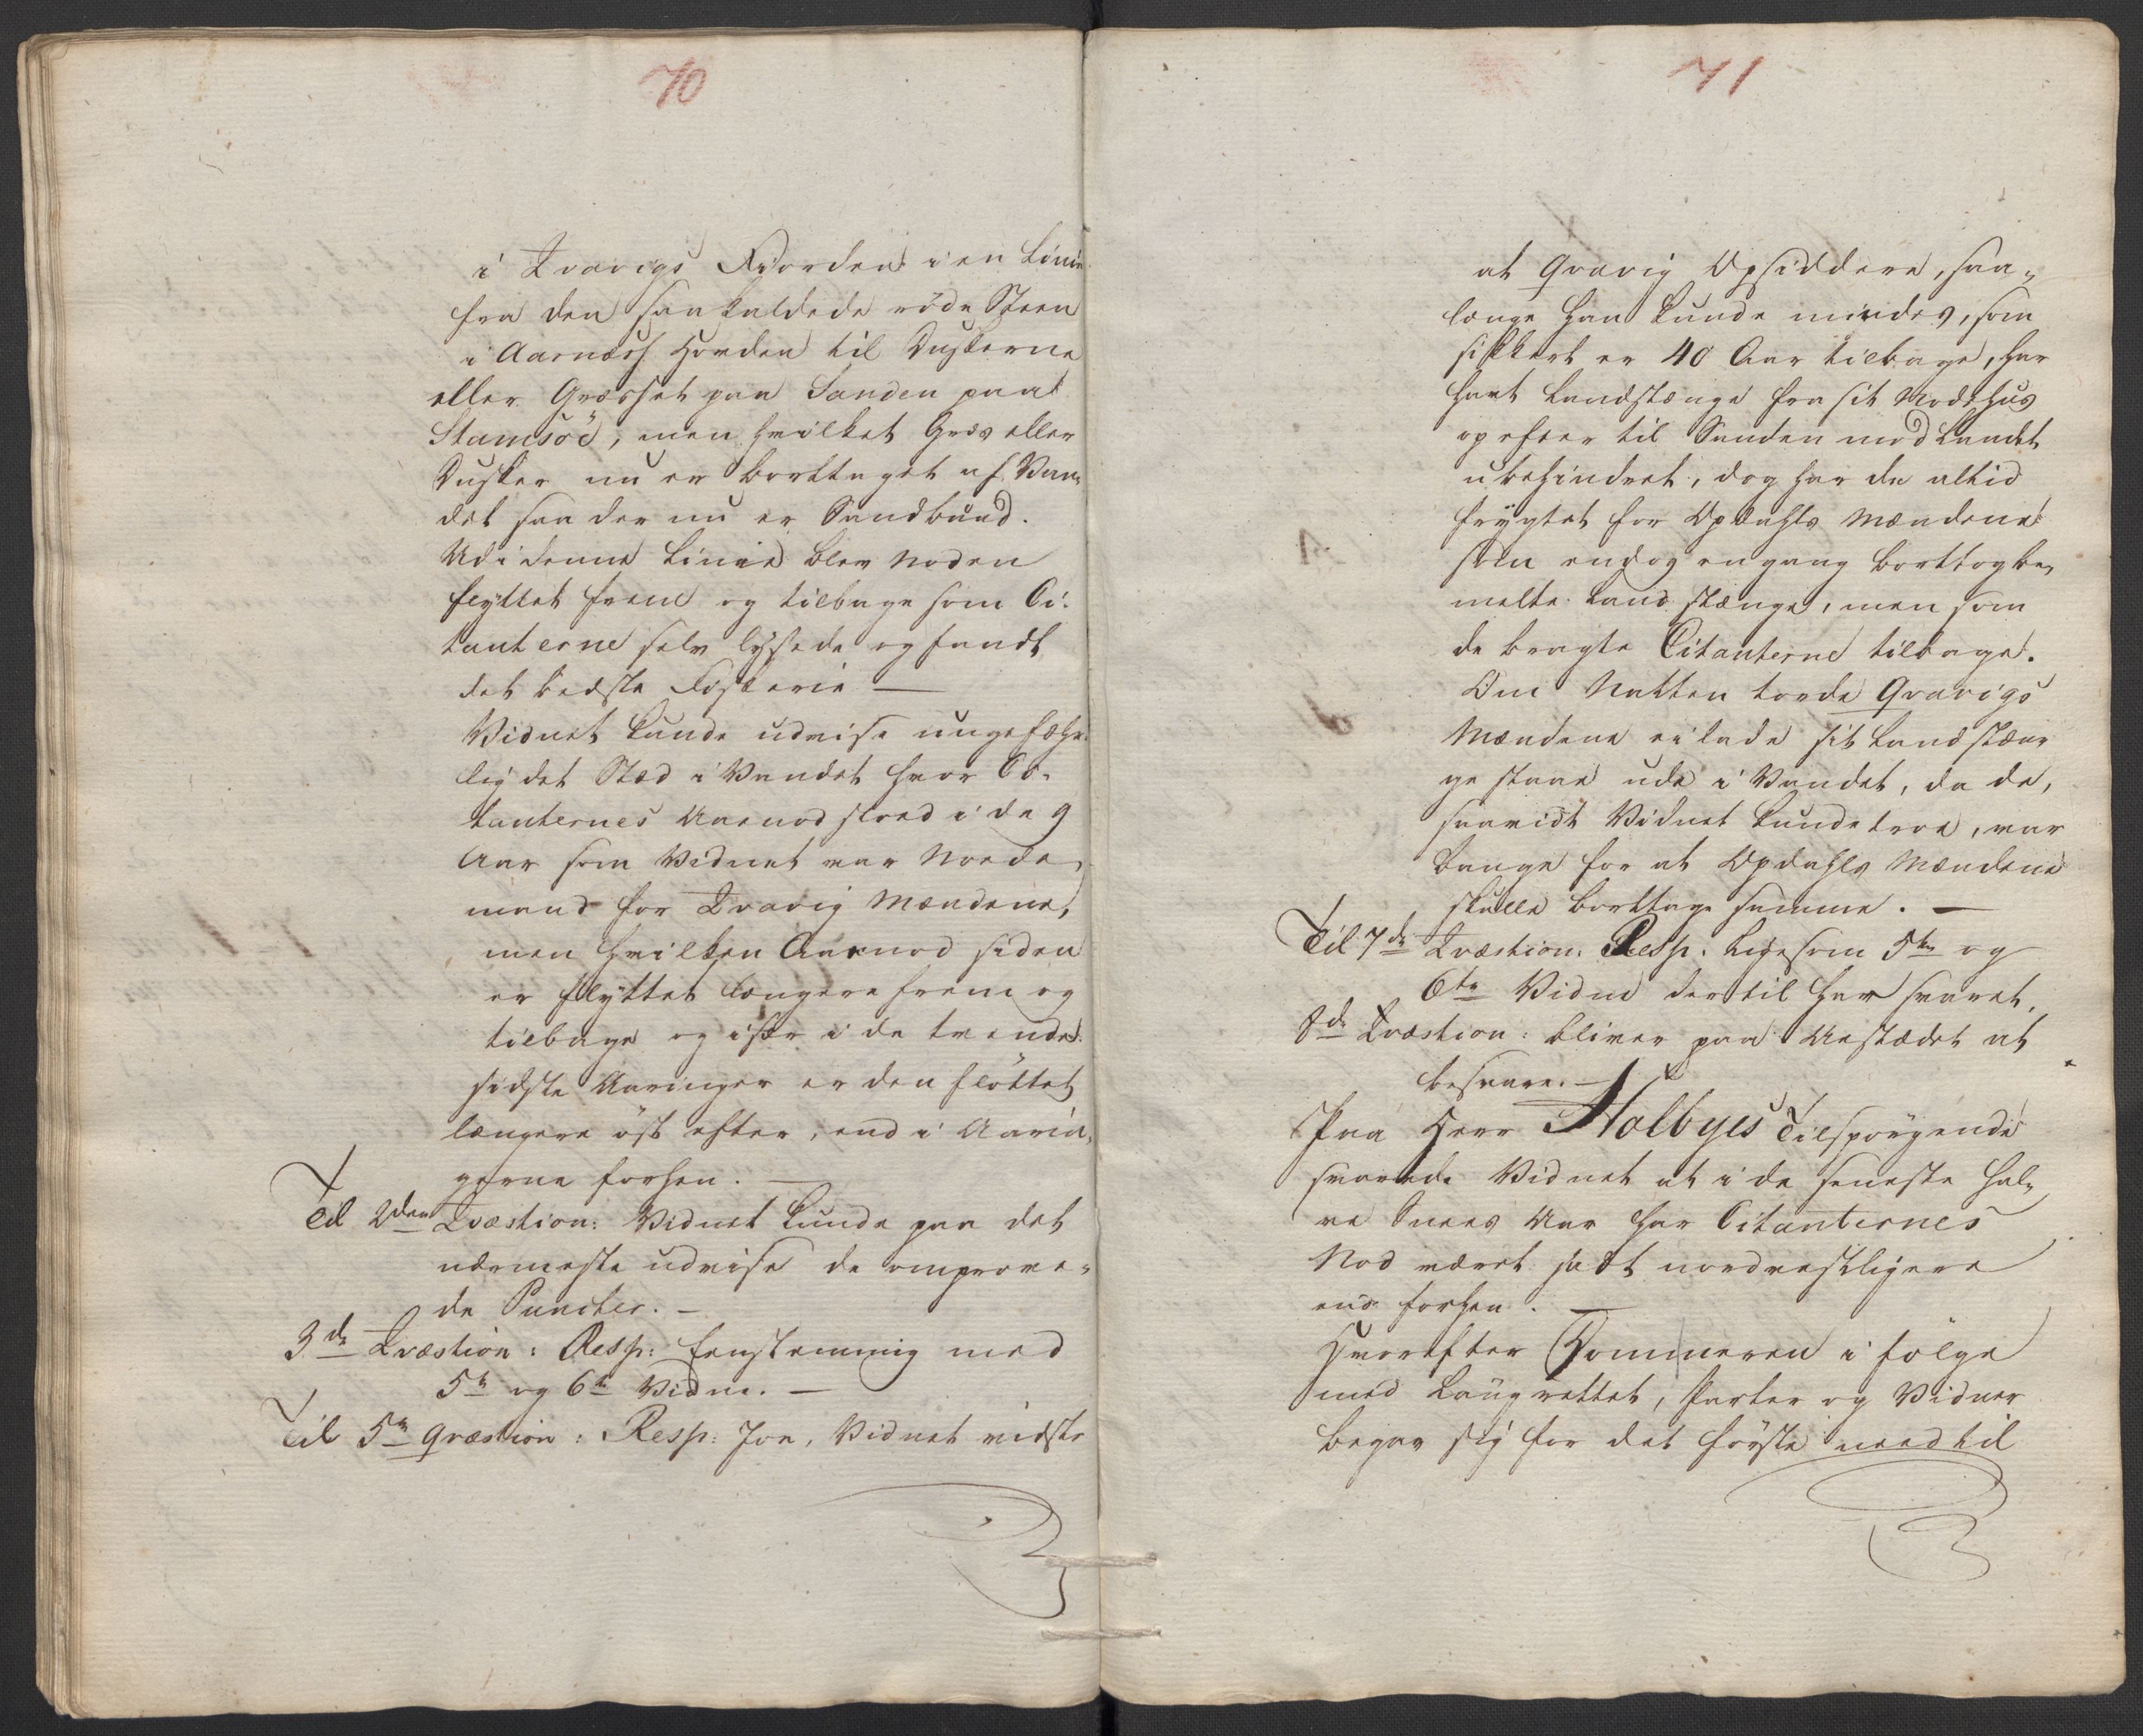 70
i Qvavigs Fiorden i en Linie
fra den saakaldede röde Steen
i Aarnæss Horden til Duskerne
eller Græsset paa Sanden paa
Stamsöe, men hvilket Græs eller
Dusker nu er borttaget af Van-
det saa der nu er Sandbund.
Udi denne Linie blev Noden
flyttet frem og tilbage som Ci-
tanterne selv lystede og fandt
det bedste Fiskerie —
Vidnet kunde udvise ungefæhr-
lig det Stæd i Vandet hvor Ci-
tanternes Aarnod stoed i de 9
Aar som Vidnet var Norde-
mand for Qvavig Mændene,
men hvilken Aarnod siden
er flyttet længere frem og
tilbage og især i de tvende
sidste Aaringer er den flöttet
længere öst efter, end i Aarin-
gerne forhen. —
Til 2den Qvæstion: Vidnet kunde paa det
nærmeste udvise de omprove-
de Puncter. —
3de Qvæstion: Resp: Eenstemmig med
5te og 6te Vidne. —
Til 5te Qvæstion: Resp: Joe, Vidnet vidste
71
at Qvavig Opsiddere, saa-
længe han kunde mindes, som
sikkert er 40 Aar tilbage, har
havt Landstænge fra sit Nodehus
op efter til Sanden mod Landet
ubehindret, dog har de altid
frygtet for Opdahls Mændene
som endog engang borttog be-
melte Land stænge, men som
de bragte Citanterne tilbage.
Om Natten torde Qvavigs
Mændene ei lade sit Landstæn-
ge staae ude i Vandet, da de,
saavidt Vidnet kunde troe, var
bange for at Opdahls Mændene
skulle borttage samme. —
Til 7de Qvæstion: Resp: ligesom 5te og
6te Vidne dertil har svaret.
8de Qvæstion: bliver paa Aastædet at
besvare. —
Paa Herr Holbyes Tilspörgende
svarede Vidnet at i de seneste hal-
ve Snees Aar har Citanternes
Nod været sadt nordvestligere
end forhen. —
Hvorefter Dommeren i fölge
med Laugrettet, Parter og Vidner
begav sig for det förste need til